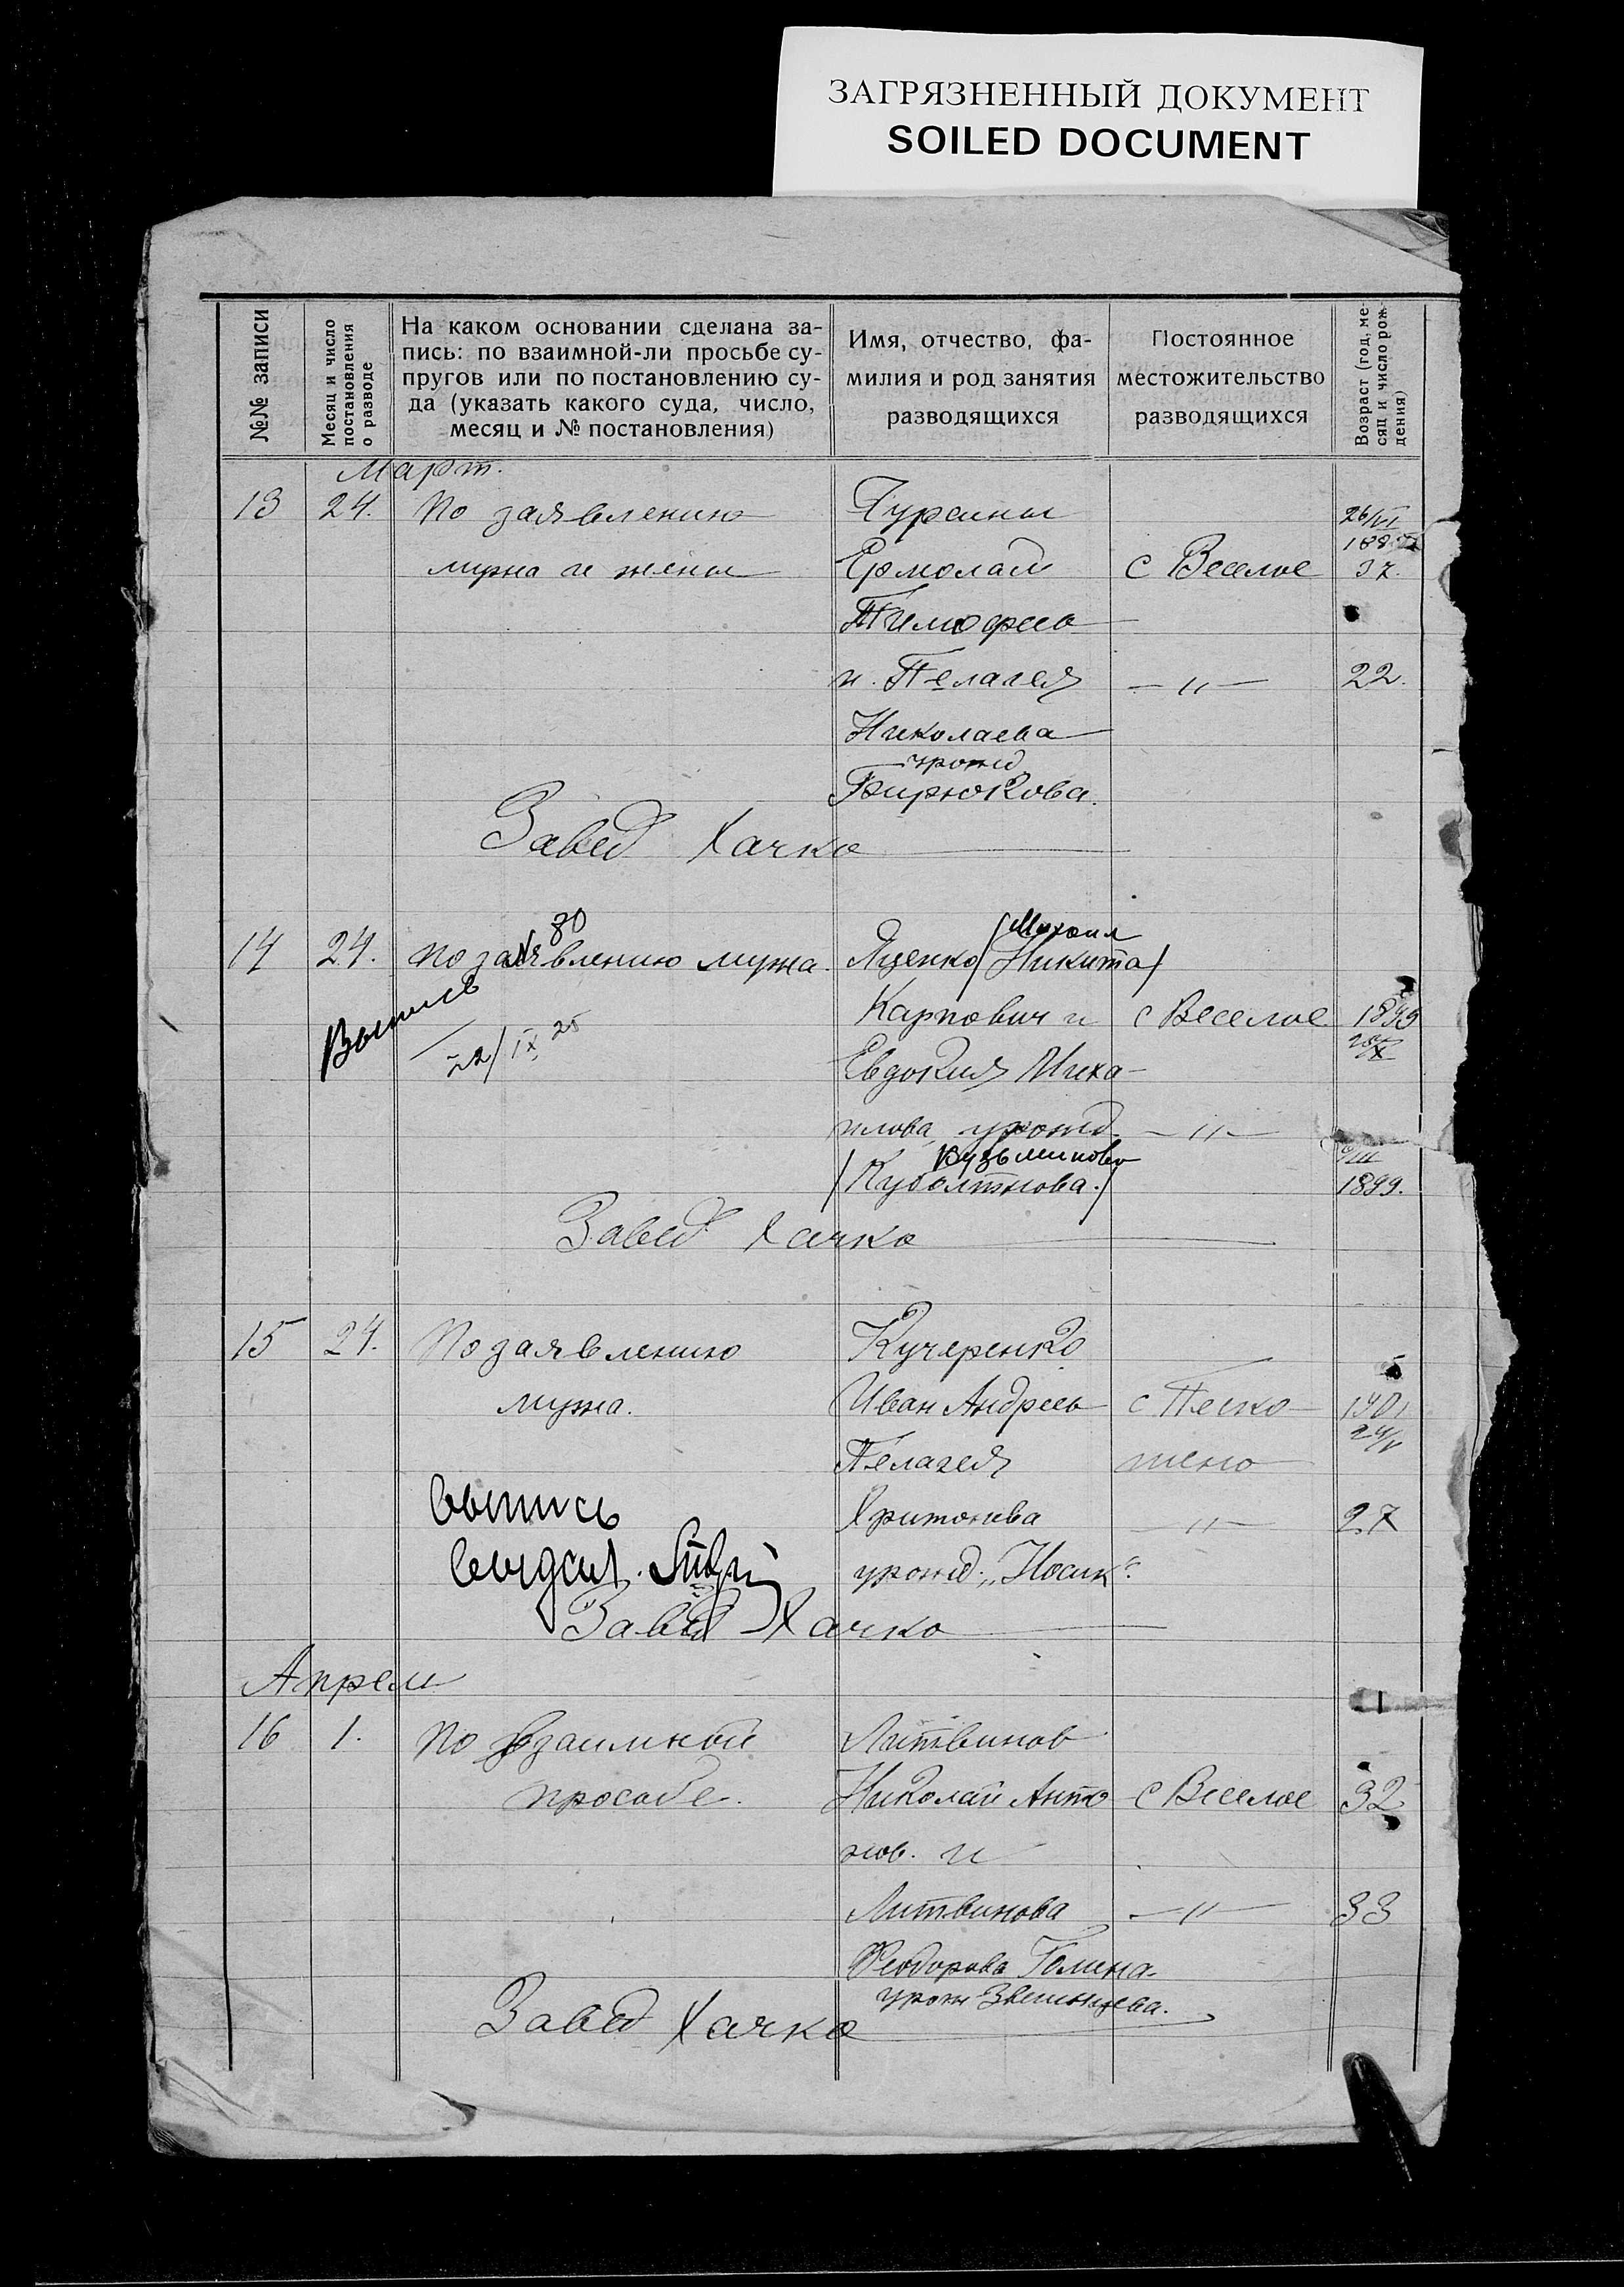 ЗАГРЯЗНЕННЫЙ ДОКУМЕНТ
SOILED DOCUMENT
№№ записи
Месяц и число постановления о разводе
На каком основании сделана за-
пись: по взаимной-ли просьбе су-
пругов или по постановлению су-
да (указать какого суда, число,
месяц и № постановления)
Имя, отчество, фа-
милия и род занятия
разводящихся
Постоянное
местожительство
разводящихся
Возраст (год, ме-
сяц и число рож-
дения)
Март.
13 24. По заявлению
мужа и жены Ермолай с Веселое 37.
Тимофеев
и Пелагея —„— 22.
Николаева
урожд
Бирюкова.
Завед Хачко
80 Михаил
14 24. По заявлению мужа. Яценко (Никита)
Выпись Карпович и с Веселое 1899
22/IX 25
Евдокия Миха-
илова урожд. —„—
Кузьминова
1899.
Завед Хачко
15 24. По заявлению Кучеренко
мужа. Иван Андреев с Песко- 1901
24/V
Пелагея
выпись Харитонова —„— 27
выдал. урожд. „Носик“.
Завед Хачко
Апрель
16 1. По взаимной Литвинов
просьбе. Николай Анто с Веселое 32
нов. и
Литвинова —„— 33
Феодорова
Завед Хачко